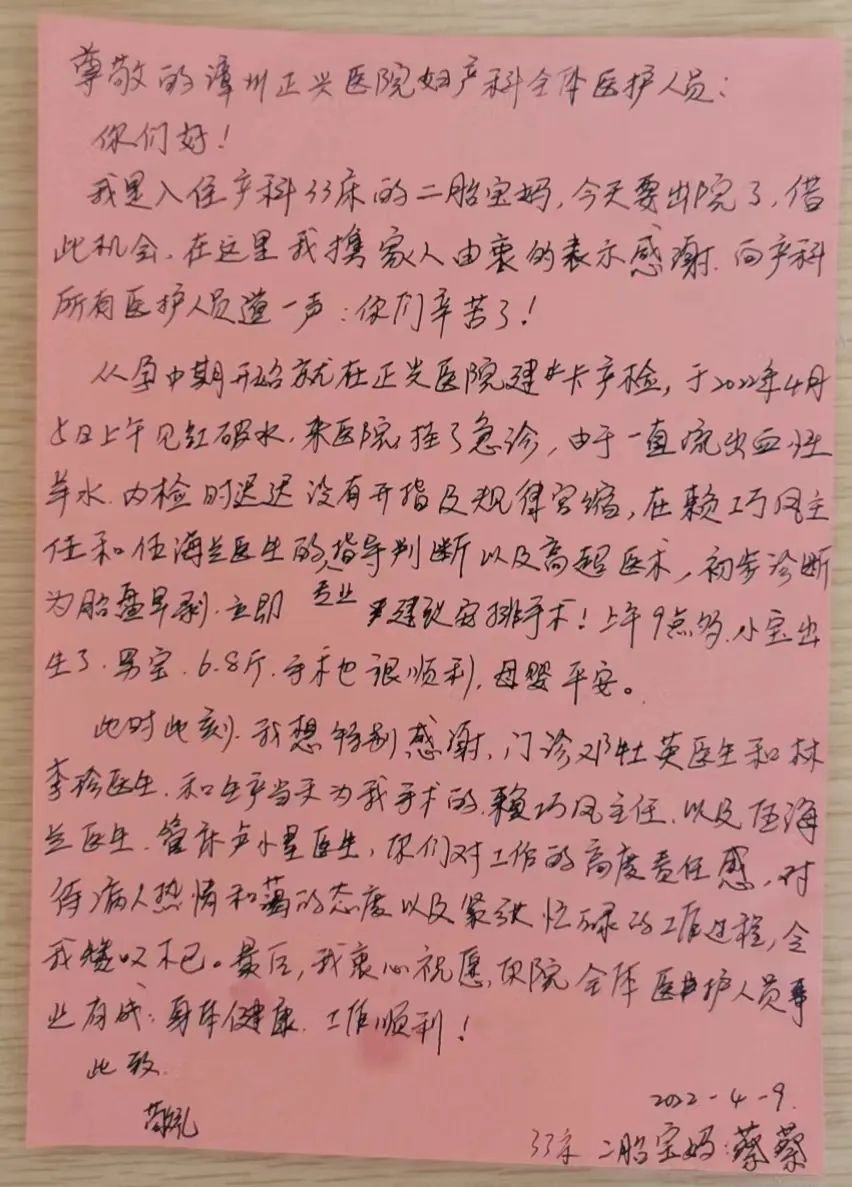 尊敬的漳州正兴医院妇产科全体医护人员：
你们好！
我是入住产科33床的二胎宝妈，今天要出院了，借
此机会，在这里我携家人由衷的表示感谢，向产科
所有医护人员道一声：你们辛苦了！
从孕中期开始就在正兴医院建卡产检，于2022年4月
5日上午见红破水，来医院挂了急诊，由于一直流出血性
羊水，内检时迟迟没有开指及规律宫缩，在赖巧凤主
任和伍海兰医生的指导判断以及高超医术，初步诊断
为胎盘早剥，立即 专业 建议安排手术！上午9点多，小宝出
生了，男宝，6.8斤，手术也很顺利，母婴平安。
此时此刻，我想特别感谢，门诊邓牡英医生和林
李珍医生，和生产当天为我手术的赖巧凤主任，以及伍海
兰医生，管床卢小星医生，你们对工作的高度责任感，对
待病人热情和蔼的态度以及紧张忙碌的工作过程，令
我赞叹不已。最后，我衷心祝愿，贵院全体医护人员事
业有成，身体健康，工作顺利！
此致
敬礼
2022-4-9.
33床 二胎宝妈：蔡蔡